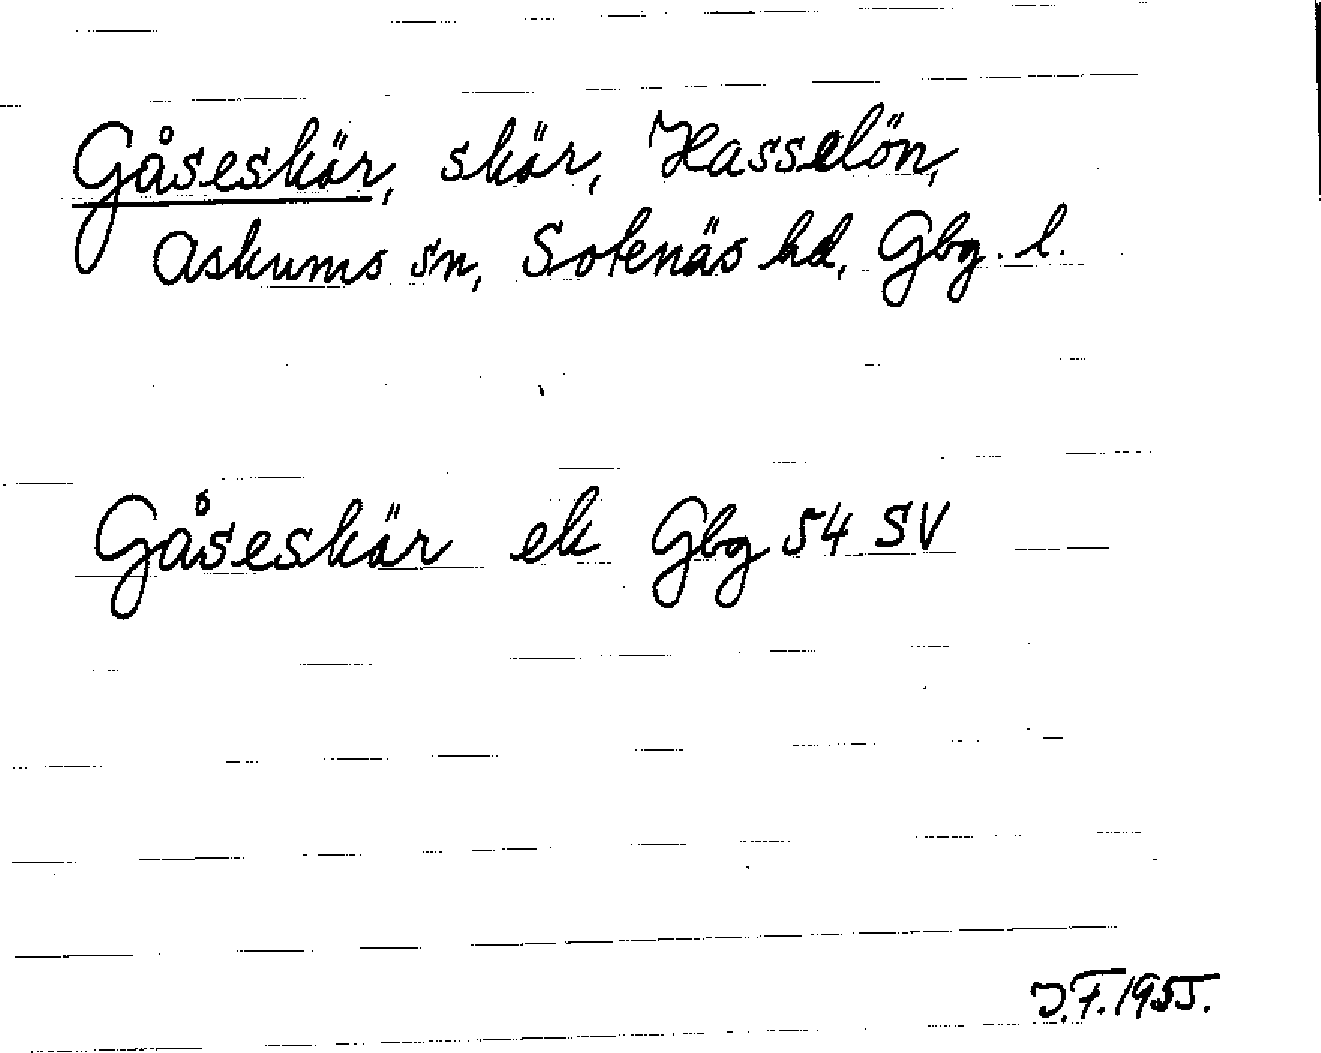 Gåseskär, skär, Hasselön,
Askums sn, Sotenäs hd, Gbg. l.
Gåseskär ek Gbg 54 SV
J.F. 1955.